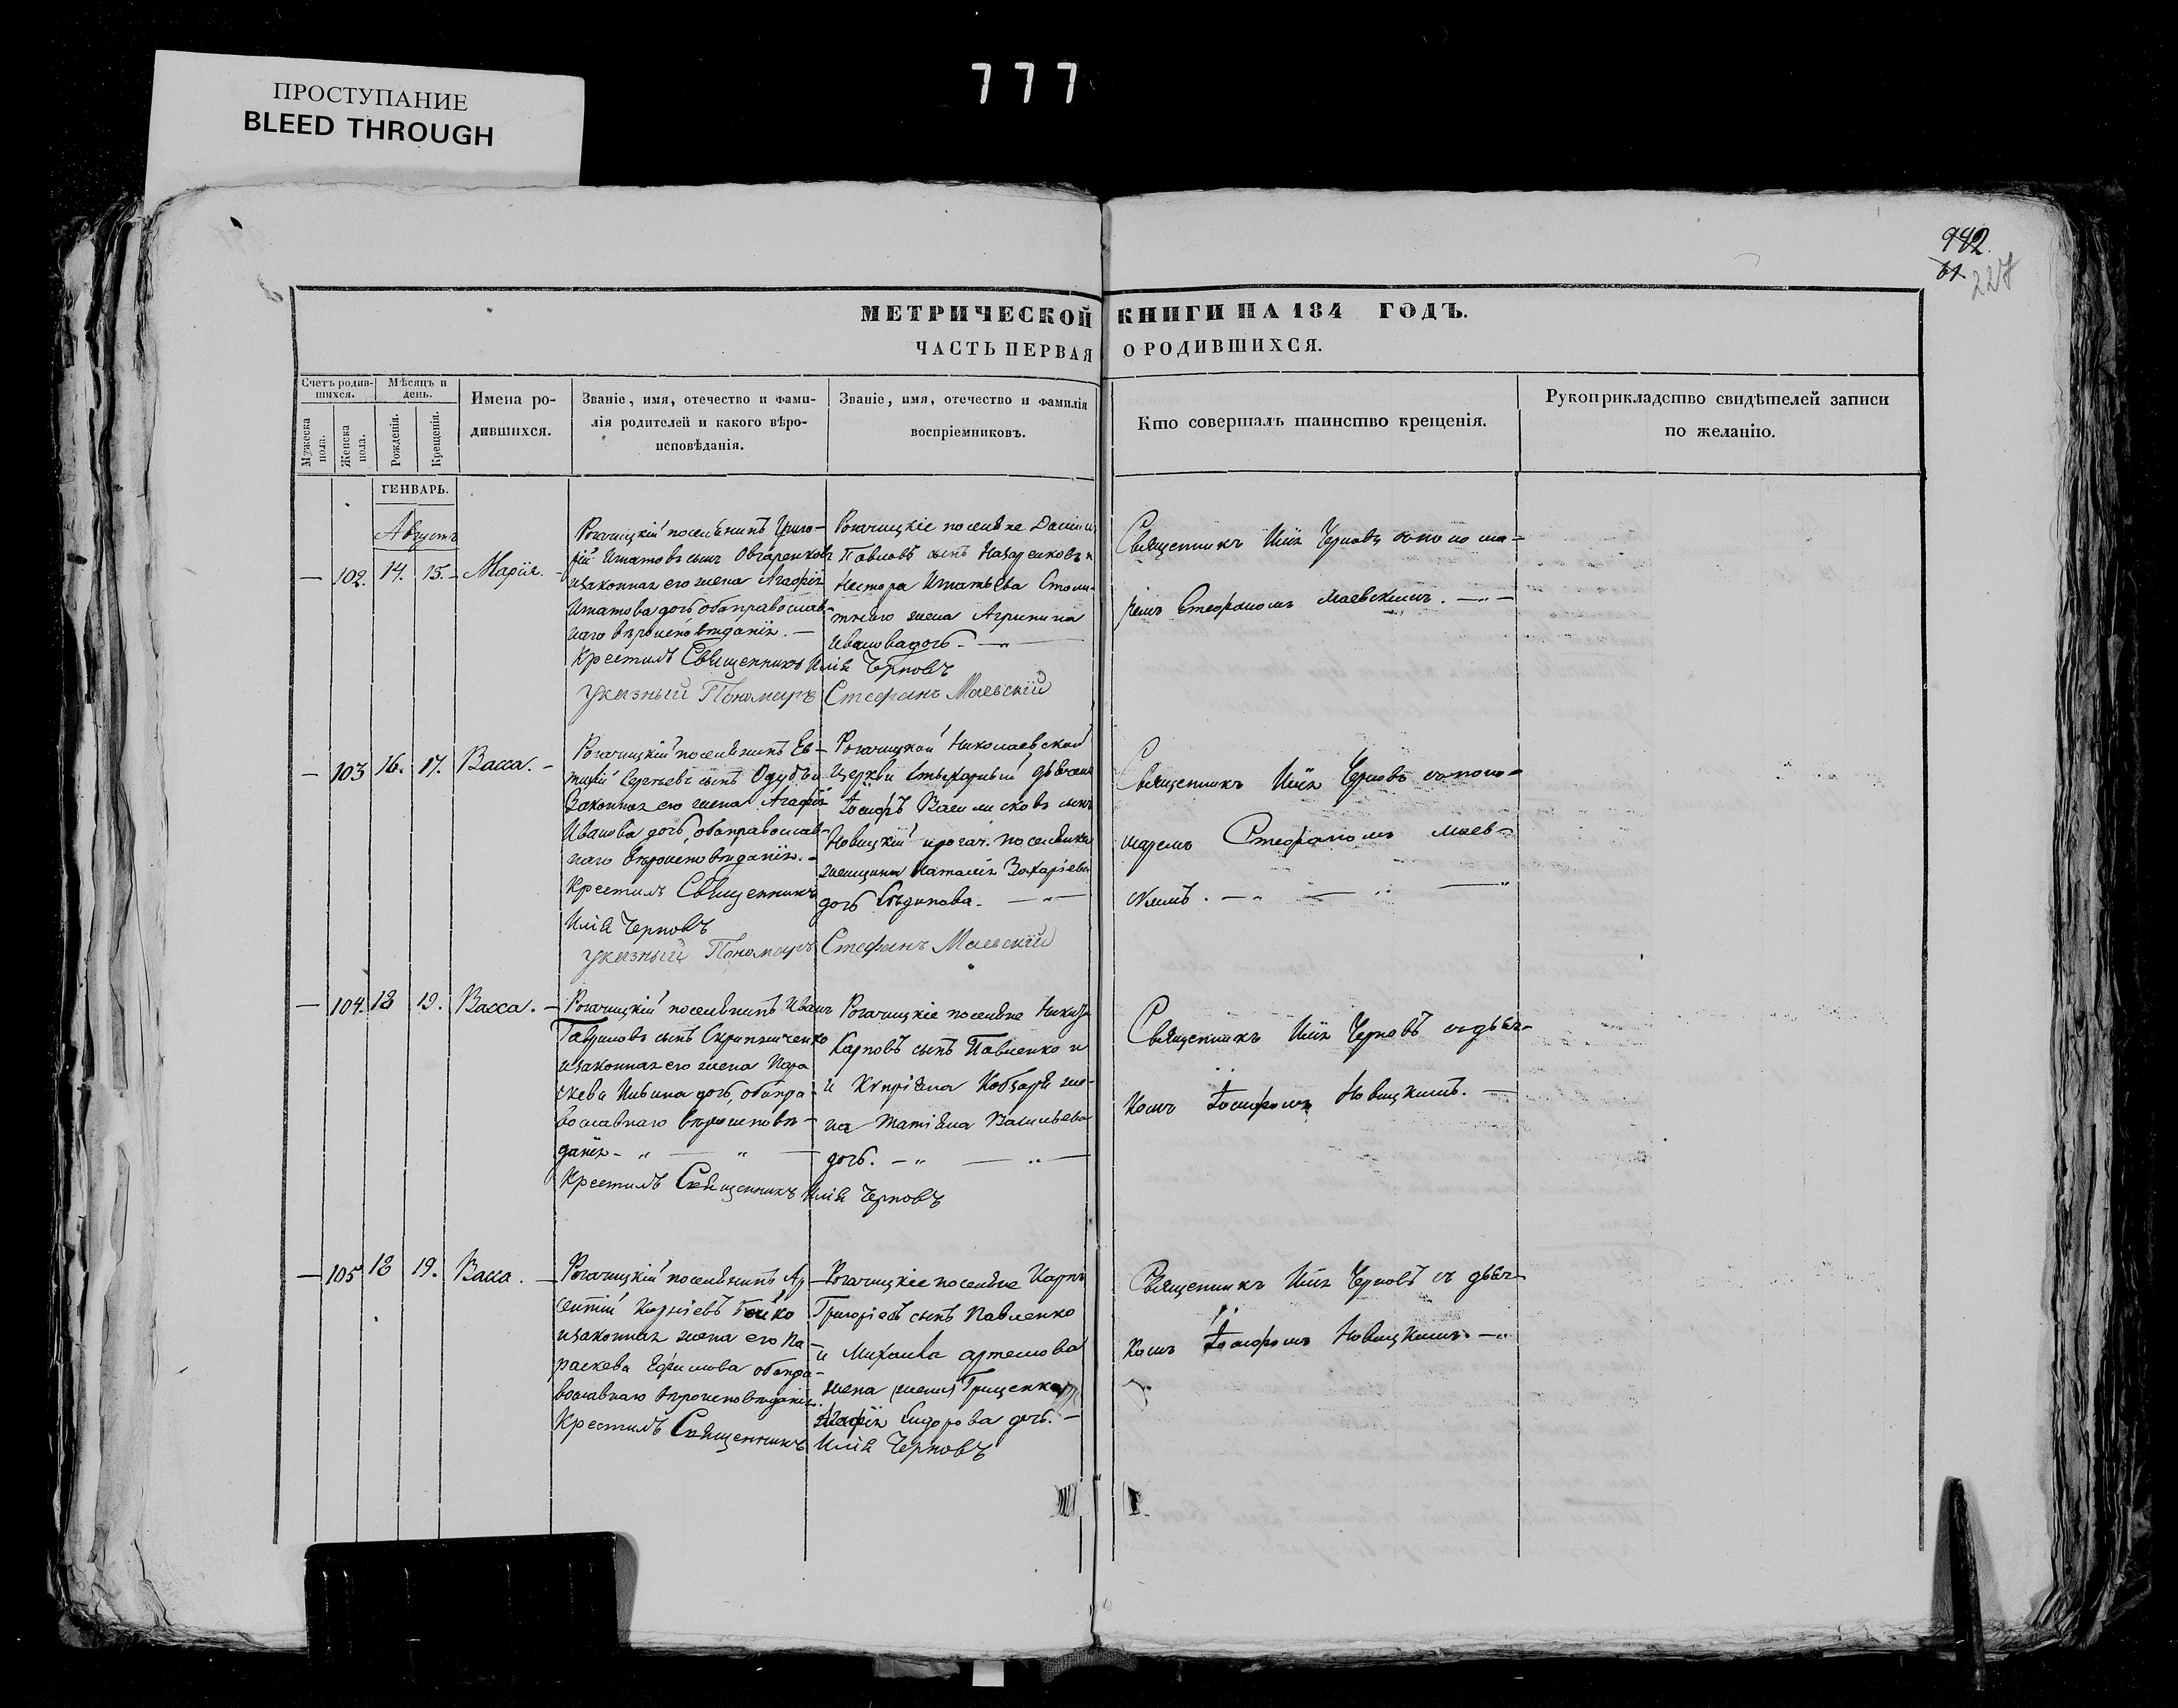 ПРОСТУПАНИЕ
BLEED THROUGH
777
942.
61.
227
МЕТРИЧЕСКОЙ КНИГИ НА 184 ГОДЪ.
ЧАСТЬ ПЕРВАЯ О РОДИВШИХСЯ.
Счетъ родив-
шихся.
Мужеска
пола.
Женска
пола.
Мѣсяцъ и
день.
Рожденія.
Крещенія.
Имена ро-
дившихся.
Званіе, имя, отечество и фами-
лія родителей и какого вѣро-
исповѣданія.
Званіе, имя, отечество и фамилія
воспріемниковъ.
Кто совершалъ таинство крещенія.
Рукоприкладство свидѣтелей записи
по желанію.
ГЕНВАРЬ.
Августъ
— 102. 14. 15. — Марія. —
Рогачицкій поселянинъ Григо-
рій Игнатовъ сынъ Овчаренковъ
и законная его жена Агафія
Игнатова дочь оба православ-
наго вѣроисповѣданія. —
Крестилъ Священникъ Илія Черновъ
указный Пономарь Стефанъ Маевскій
Рогачицкіе поселяне
Павловъ сынъ Назаренковъ и
Нестора Игнатьева
жена Агрипина
Иванова дочь. — " —
Священникъ Илія Черновъ съ поно ма-
ремъ Стефаномъ Маевскимъ. — " —
— 103 16. 17. Васса. —
Рогачицкій поселянинъ Ев-
тихій Сергѣевъ сынъ
Законная его жена Агафія
Иванова дочь, оба православ-
наго вѣроисповѣданія. —
Крестилъ Священникъ
Илія Черновъ
указный Пономарь Стефанъ Маевскій
Рогачицкой Николаевской
Церкви Стихарный дьячекъ
Іосифъ Василисковъ сынъ
Новицкій и рогач. поселянка
женщина Наталія Захаріева
дочь — " —
Священникъ Илія Черновъ съ поно-
маремъ Стефаномъ Маев-
скимъ. — " — " —
— 104. 18 19. Васса. —
Рогачицкій поселянинъ Иванъ
Гавриловъ сынъ Скрипниченко
и законная его жена Пара
скева дочь, оба пра-
вославнаго вѣроисповѣ-
данія — " — " —
Крестилъ Священникъ Илія Черновъ
Рогачицкіе поселяне Никита
Карповъ сынъ Павленко и
и Кѵпріяна Кобзаря же-
на Татіяна Васильева
дочь. — " — " —
Священникъ Илія Черновъ съ дьяч-
комъ Іосифомъ Новицкимъ. —
— 105 18 19. Васса. —
Рогачицкій поселянинъ Ар-
сентій Корніевъ Бойко
и законная жена его Па-
раскева Ефимова оба пра-
вославнаго вѣроисповѣданія.
Крестилъ Священникъ Илія Черновъ
Рогачицкіе поселяне Карпъ
Григоріевъ сынъ Павленко
и Михаила Артемова
жена (жена) Гриценко
Агафія Сидорова дочь. —
Священникъ Илія Черновъ съ дьяч-
комъ Іосифомъ Новицкимъ. — "